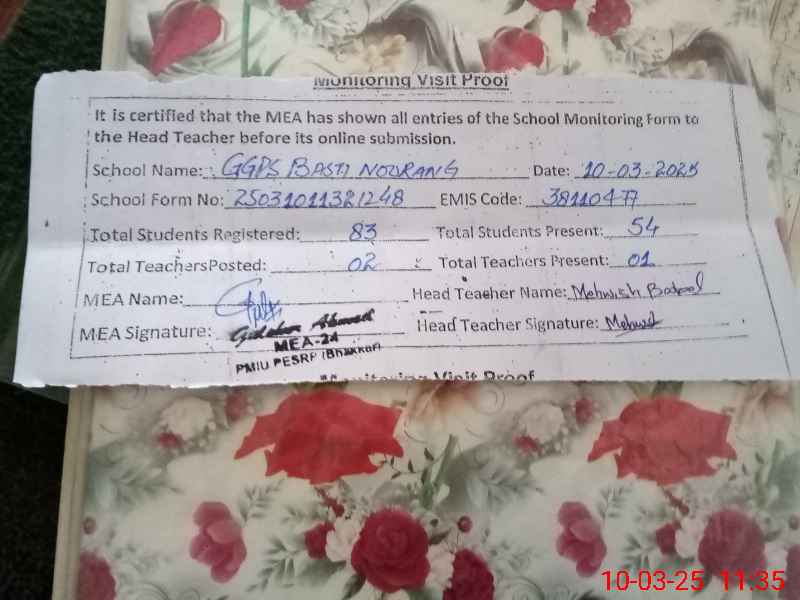 Monitoring Visit Proof
It is certified that the MEA has shown all entries of the School Monitoring Form to
the Head Teacher before its online submission.
School Name: GGPS BASTI NOORANG Date: 10-03-2025
School Form No: 25031011321248 EMIS Code:
Total Students Registered: 83 Total Students Present: 54
Total TeachersPosted: 02 Total Teachers Present: 01
MEA Name: Head Teacher Name: Mehwish
MEA Signature: Ahmad Head Teacher Signature:
MEA-24
PMIU PESRP (Bhakkar)
Monitoring Visit Proof
10-03-25 11:35